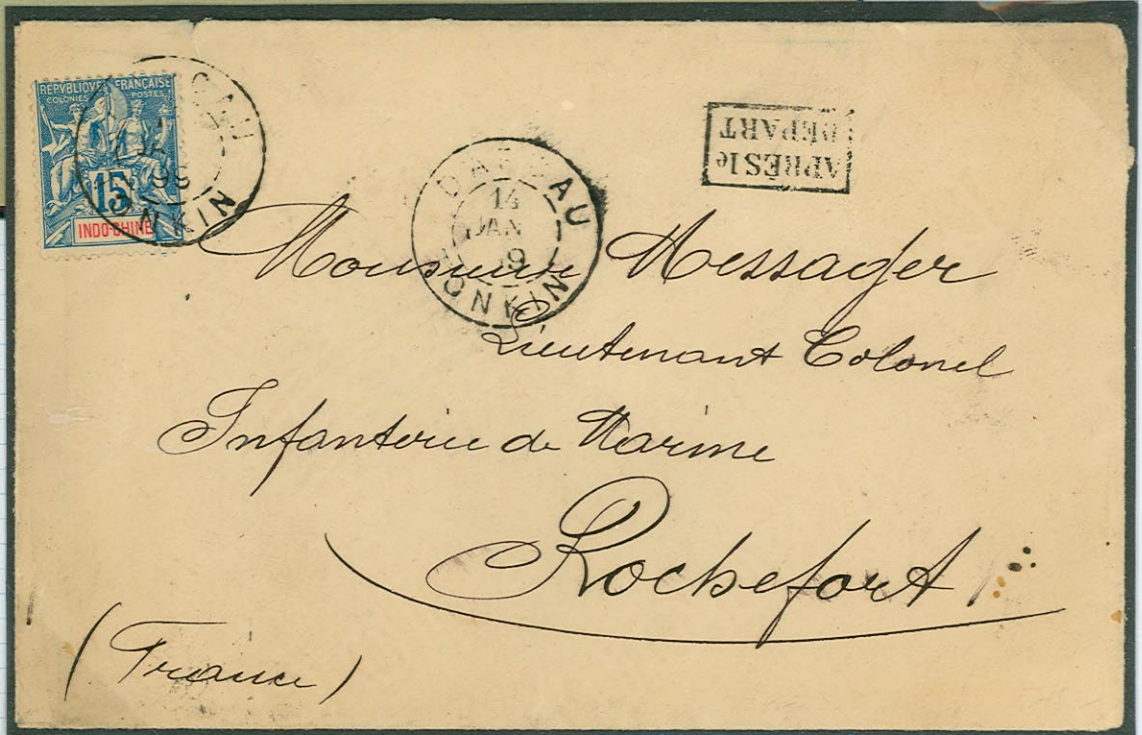 REPVBLIQVE FRANÇAISE
COLONIES POSTES
15
INDO-CHINE
99
TONKIN
DAP-CAU
14
JAN
99
TONKIN
APRÈS le
DÉPART
Monsieur Messager
Lieutenant Colonel
Infanterie de Marine
Rochefort
(France)